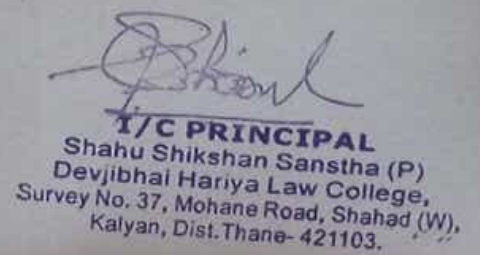 I/C PRINCIPAL
Shahu Shikshan Sanstha (P)
Devjibhai Hariya Law College,
Survey No. 37, Mohane Road, Shahad (W),
Kalyan, Dist.Thane- 421103.